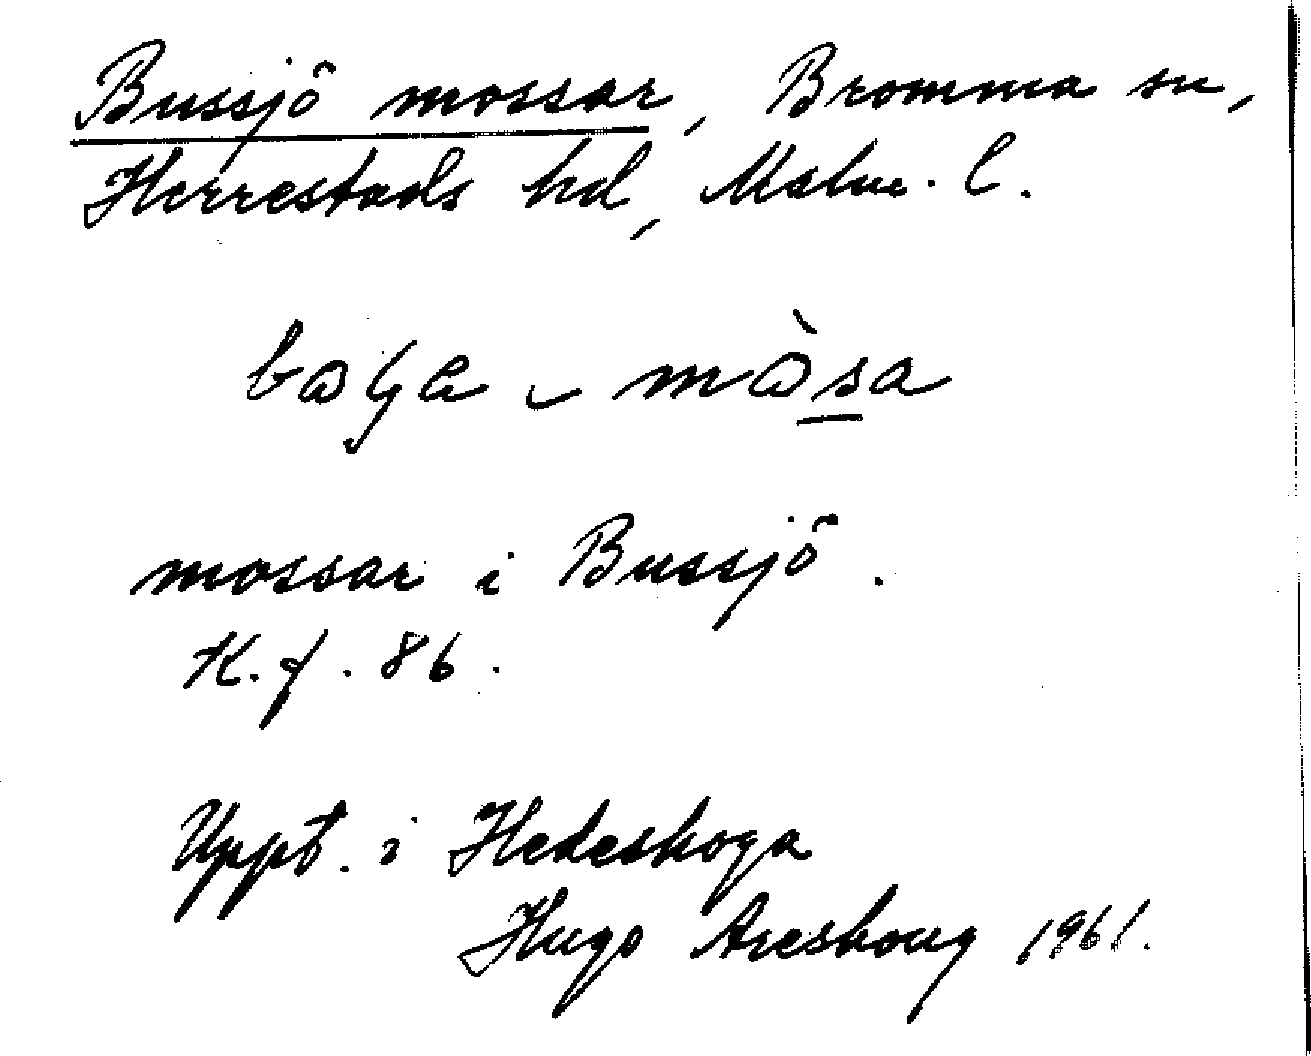 Bussjö mossar, Bromma sn,
Herrestads hd, Malm. l.
mossar i Bussjö.
K.f. 86.
Uppt. i Hedeskoga
Hugo Areskoug 1961.